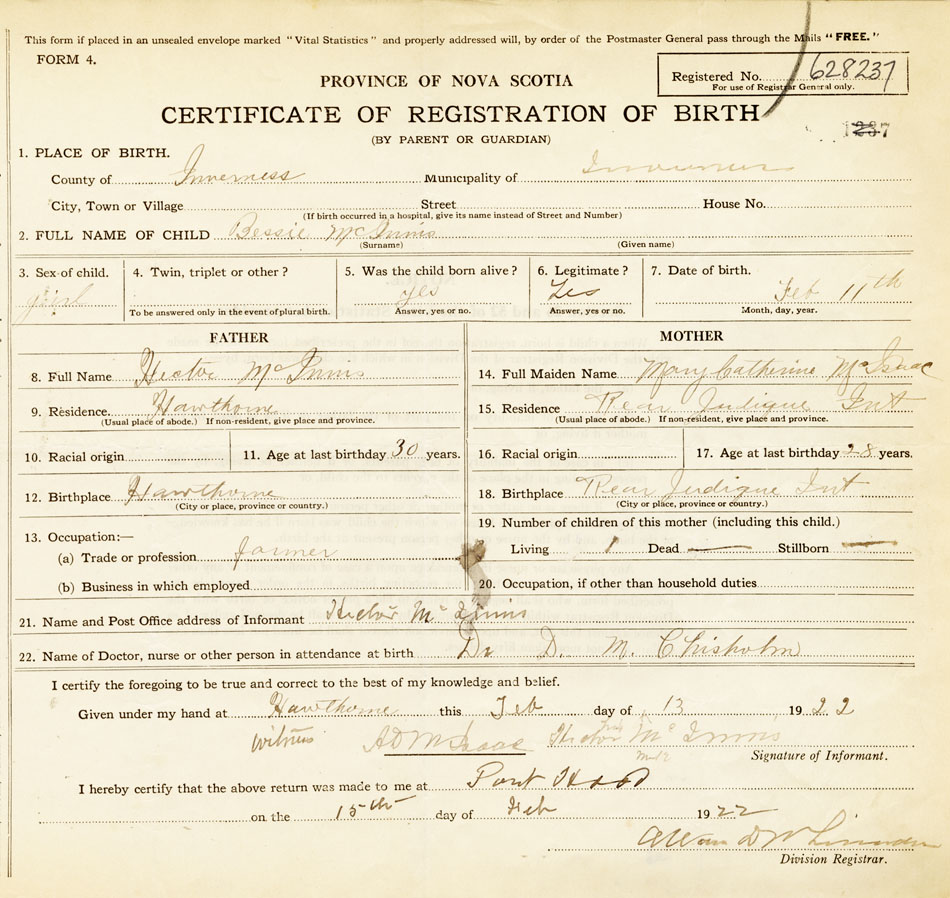 This form if placed in an unsealed envelope marked "Vital Statistics" and properly addressed will, by order of the Postmaster General pass through the Mails "FREE."
FORM 4.
Registered No. 628237
For use of Registrar General only.
PROVINCE OF NOVA SCOTIA
CERTIFICATE OF REGISTRATION OF BIRTH
(BY PARENT OR GUARDIAN)
1. PLACE OF BIRTH.
County of Inverness Municipality of Inverness
City, Town or Village Street House No.
(If birth occurred in a hospital, give its name instead of Street and Number)
2. FULL NAME OF CHILD Bessie McInnis
(Surname) (Given name)
3. Sex of child. 4. Twin, triplet or other? 5. Was the child born alive? 6. Legitimate? 7. Date of birth.
girl yes Yes Feb 11th
To be answered only in the event of plural birth. Answer, yes or no. Answer, yes or no. Month, day, year.
FATHER MOTHER
8. Full Name Hector McInnis 14. Full Maiden Name Mary Catherine McIsaac
9. Residence. Hawthorne 15. Residence Rear Judique Int
(Usual place of abode.) If non-resident, give place and province. (Usual place of abode.) If non-resident, give place and province.
10. Racial origin 11. Age at last birthday 30 years. 16. Racial origin 17. Age at last birthday 28 years.
12. Birthplace Hawthorne 18. Birthplace Rear Judique Int
(City or place, province or country.) (City or place, province or country.)
13. Occupation:— 19. Number of children of this mother (including this child.)
(a) Trade or profession farmer Living 1 Dead — Stillborn —
(b) Business in which employed 20. Occupation, if other than household duties
21. Name and Post Office address of Informant Hector McInnis
22. Name of Doctor, nurse or other person in attendance at birth Dr D. M. Chisholm
I certify the foregoing to be true and correct to the best of my knowledge and belief.
Given under my hand at Hawthorne this Feb day of 13 1922
witness A D McIsaac Hector McInnis
Signature of Informant.
I hereby certify that the above return was made to me at Port Hood
on the 15th day of Feb 1922
Division Registrar.